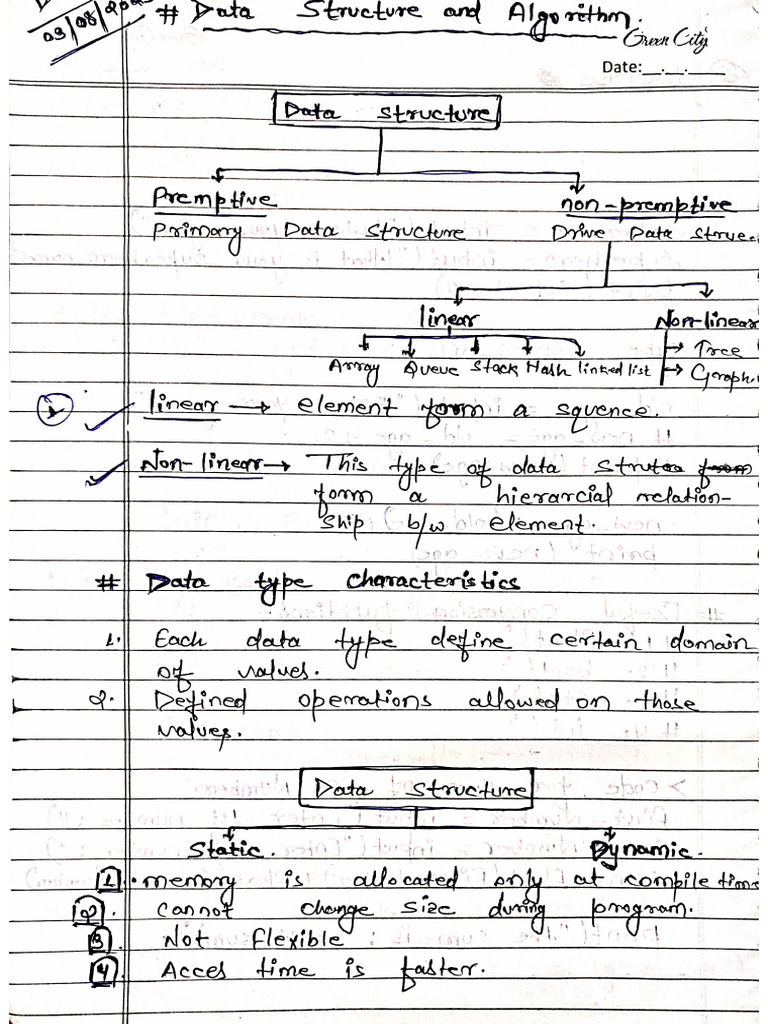 03/08/20
# Data Structure and Algorithm.
Green City
Date:__.__.____
Data structure
Premptive non-premptive
Primary Data structure Drive Data Struc.
linear Non-linear
Array Queue Stack Hash linked list → Tree
→ Graph.
1 linear → element form a squence.
Non-linear → This type of data
form a hierarcial relation-
ship b/w element.
# Data type characteristics
1. Each data type define certain domain
of values.
2. Defined operations allowed on those
values.
Data structure
Static. Dynamic.
1. memory is allocated only at compile time
2. cannot change size during program.
3. Not flexible.
4. Acces time is faster.